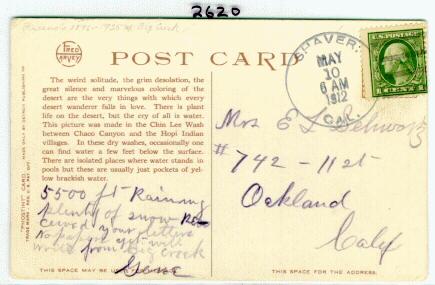 2620
FRED
HARVEY
POST CARD
The weird solitude, the grim desolation, the
great silence and marvelous coloring of the
desert are the very things with which every
desert wanderer falls in love. There is plant
life on the desert, but the cry of all is water.
This picture was made in the Chin Lee Wash
between Chaco Canyon and the Hopi Indian
villages. In these dry washes, occasionally one
can find water a few feet below the surface.
There are isolated places where water stands in
pools but these are usually just pockets of yel-
low brackish water.
"PHOSTINT" CARD
MADE ONLY BY DETROIT PUBLISHING CO.
5500 ft Raining
plenty of snow Re-
ceived your letters
No papers yet will
write from Big Creek
Gene
THIS SPACE MAY BE
SHAVER,
MAY
10
6 AM
1912
CAL.
1 CENT 1
Mrs E L Schwartz
#742 - 11 St
Oakland
Calif
THIS SPACE FOR THE ADDRESS.